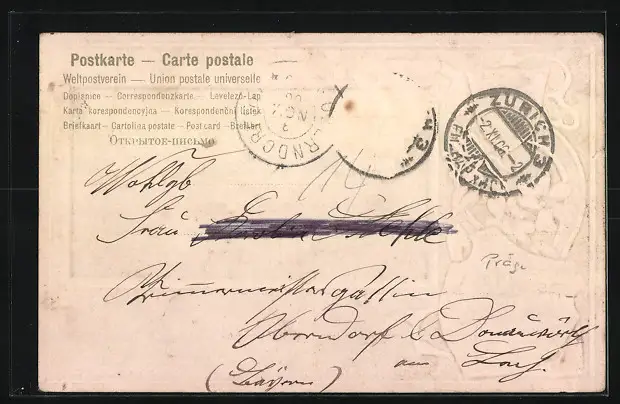 Postkarte — Carte postale
Weltpostverein — Union postale universelle
Dopisnice — Correspondenzkarte — Levelező-Lap
Karta korespondencyjna — Korespondenční lístek
Briefkaart — Cartolina postale — Post card — Brefkort
ОТКРЫТОЕ-ПИСЬМО
ZÜRICH 3
-2.XI.06.-2
3
14
Wohlgb
Frau
Zimmermeistersgattin
Oberndorf b. Donauwörth
am Lech
(Bayern)
Präg.